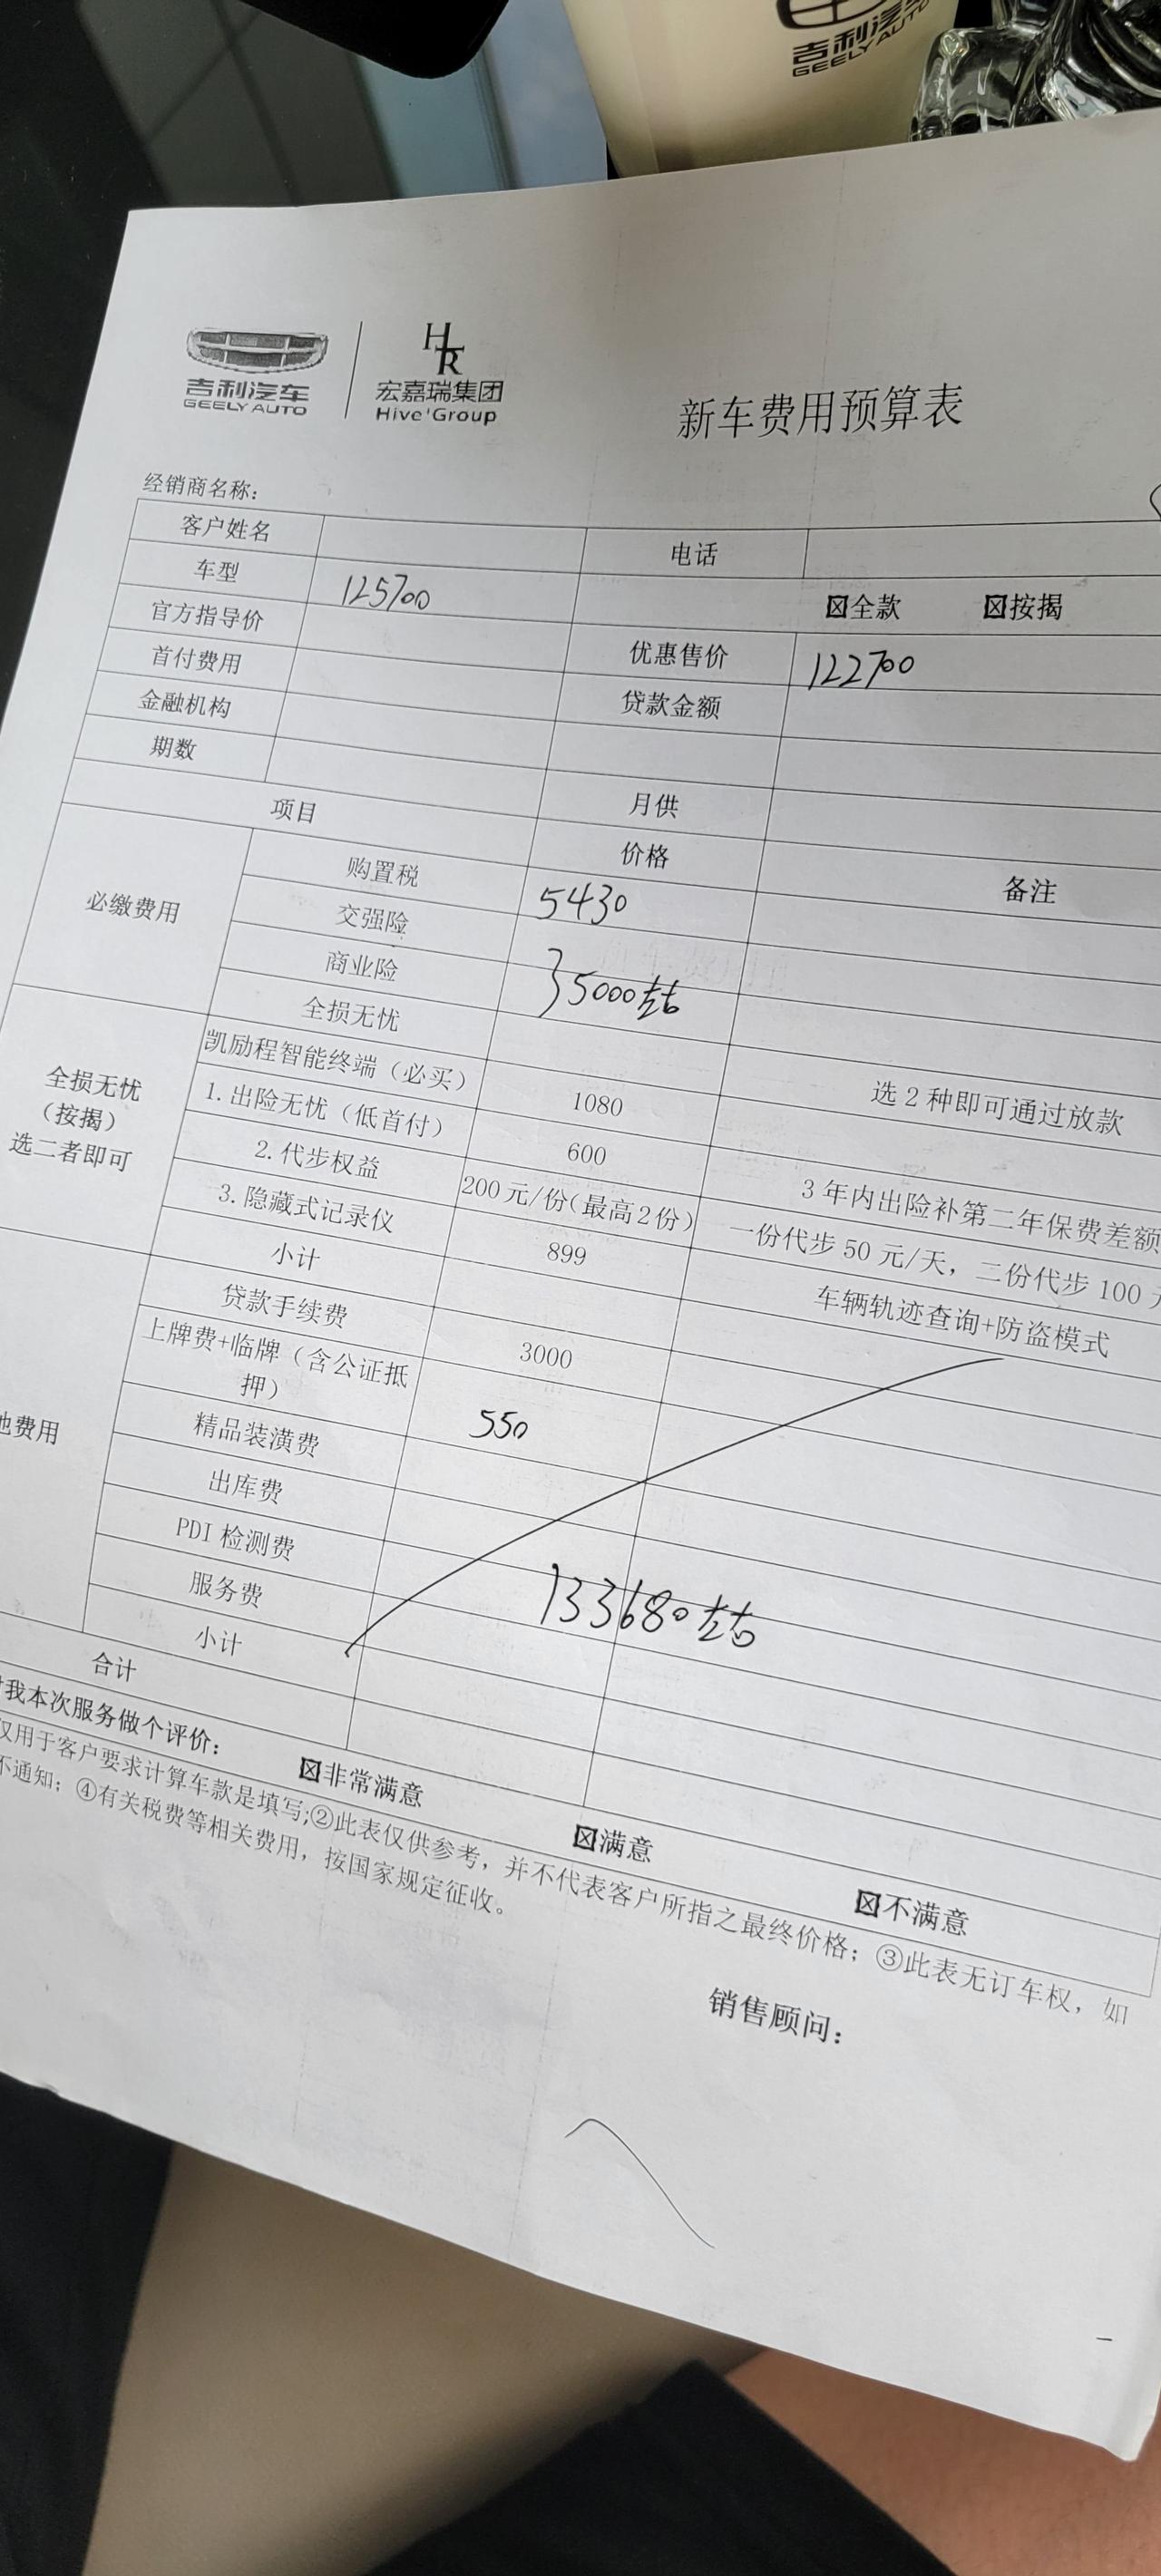 吉利汽车
GEELY AUTO
吉利汽车
GEELY AUTO
HR
宏嘉瑞集团
Hive'Group
新车费用预算表
经销商名称：
客户姓名 电话
车型 125700 ☒全款 ☒按揭
官方指导价 优惠售价 122700
首付费用 贷款金额
金融机构
期数 月供
项目 价格 备注
必缴费用
购置税 5430
交强险
商业险 }5000左右
全损无忧
全损无忧
（按揭）
选二者即可
凯励程智能终端（必买） 1080 选2种即可通过放款
1.出险无忧（低首付） 600 3年内出险补第二年保费差额
2.代步权益 200元/份(最高2份) 一份代步50元/天，二份代步100
3.隐藏式记录仪 899 车辆轨迹查询+防盗模式
小计
贷款手续费 3000
上牌费+临牌（含公证抵
押） 550
他费用
精品装潢费
出库费
PDI 检测费
服务费 133680左右
小计
合计
我本次服务做个评价： ☒非常满意 ☒满意 ☒不满意
仅用于客户要求计算车款是填写;②此表仅供参考，并不代表客户所指之最终价格；③此表无订车权，如
不通知；④有关税费等相关费用，按国家规定征收。
销售顾问：